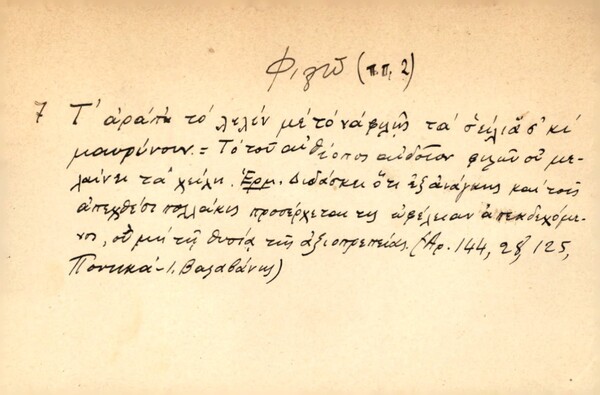 Φιλῶ (π.π. 2)
7 Τ' ἀράπ' τὸ λελὶν μὲ τὸ νὰ φιλῇς τὰ σ̌είλια̈ σ' κὶ
μαυρύνουν. = Τὸ τοῦ αἰθίοπος αἰδοῖον φιλῶν οὐ με-
λαίνει τὰ χείλη. Ἑρμ. Διδάσκει ὅτι ἐξ ἀνάγκης καὶ τοῖς
ἀπεχθέσι πολλάκις προσέρχεται τις ὠφέλειαν ἀπεκδεχόμε-
νος, οὐ μὴ τῇ θυσίᾳ τῆς ἀξιοπρεπείας. (Ἀρ. 144, 28, 125,
Ποντικά - Ι. Βαλαβάνης)